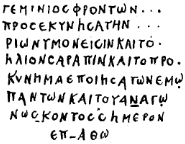 ΓΕΜΙΝΙΟCΦΡΟΝΤΩΝ...
ΠΡΟCΕΚΥΝΗCΑΤΗΝ...
ΡΙΩΝΥΜΟΝΕΙCΙΝΚΑΙΤΟ·
ΗΛΙΟΝCΑΡΑΠΙΝΚΑΙΤΟΠΡΟ.
ΚΥΝΗΜΑΕΠΟΙΗCΑΤΩΝΕΜΩ
ΠΑΝΤΩΝΚΑΙΤΟΥΑΝΑΓΩ
ΝΩCΚΟΝΤΟCCΗΜΕΡΟΝ
ΕΠ-ΑΘΩ